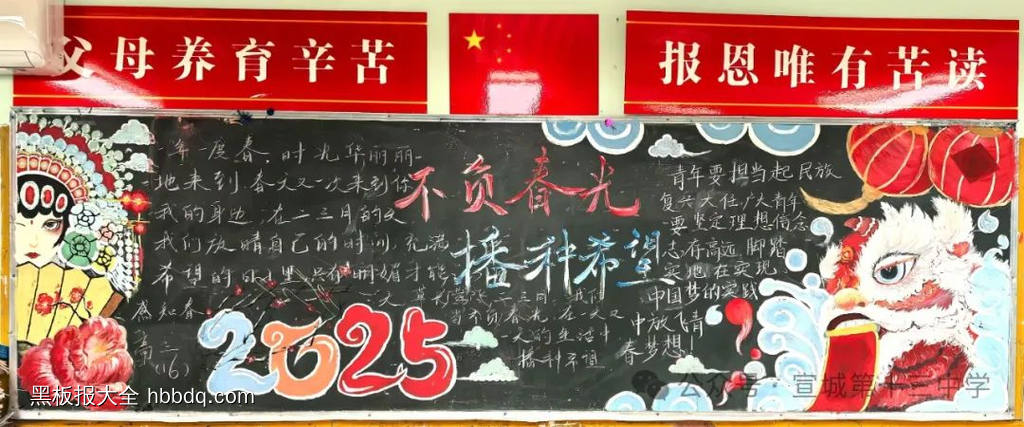 父母养育辛苦
报恩唯有苦读
年一度春，时光华丽丽
地来到，春天又一次来到你
我的身边，在二三月的
我们放晴自己的时间，充满
希望的
才能
感知春
高三
(16)
不负春光
播种希望
2025
当不负春光，在一天又
一天的生活中
播种希望
青年要担当起民族
复兴大任，广大青年
要坚定理想信念
志存高远 脚踏
实地，在实现
中国梦的实践
中放飞青
春梦想！
黑板报大全 hbbdq.com
公众号·宣城第十三中学